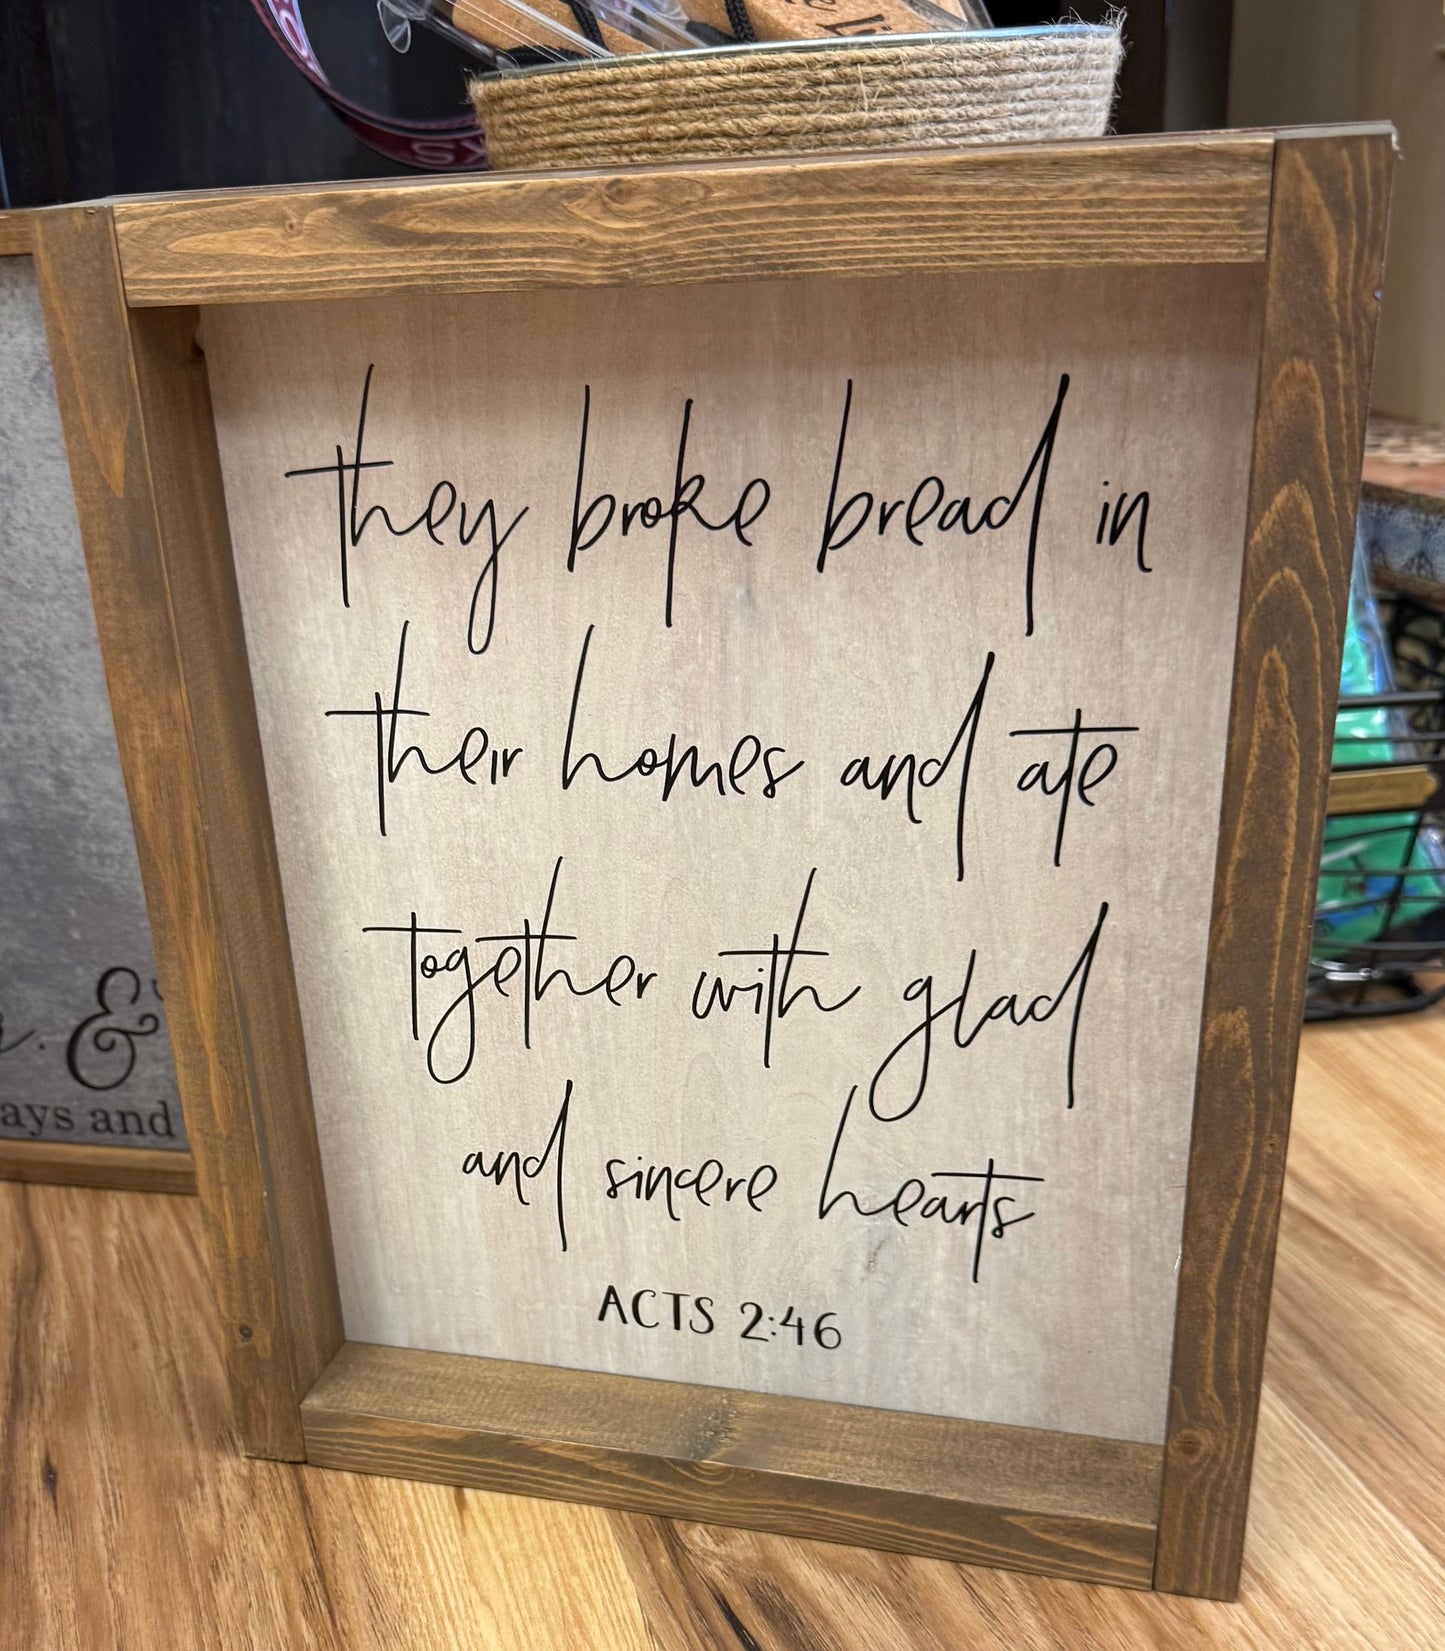 they broke bread in
their homes and ate
together with glad
and sincere hearts
ACTS 2:46
&
ays and